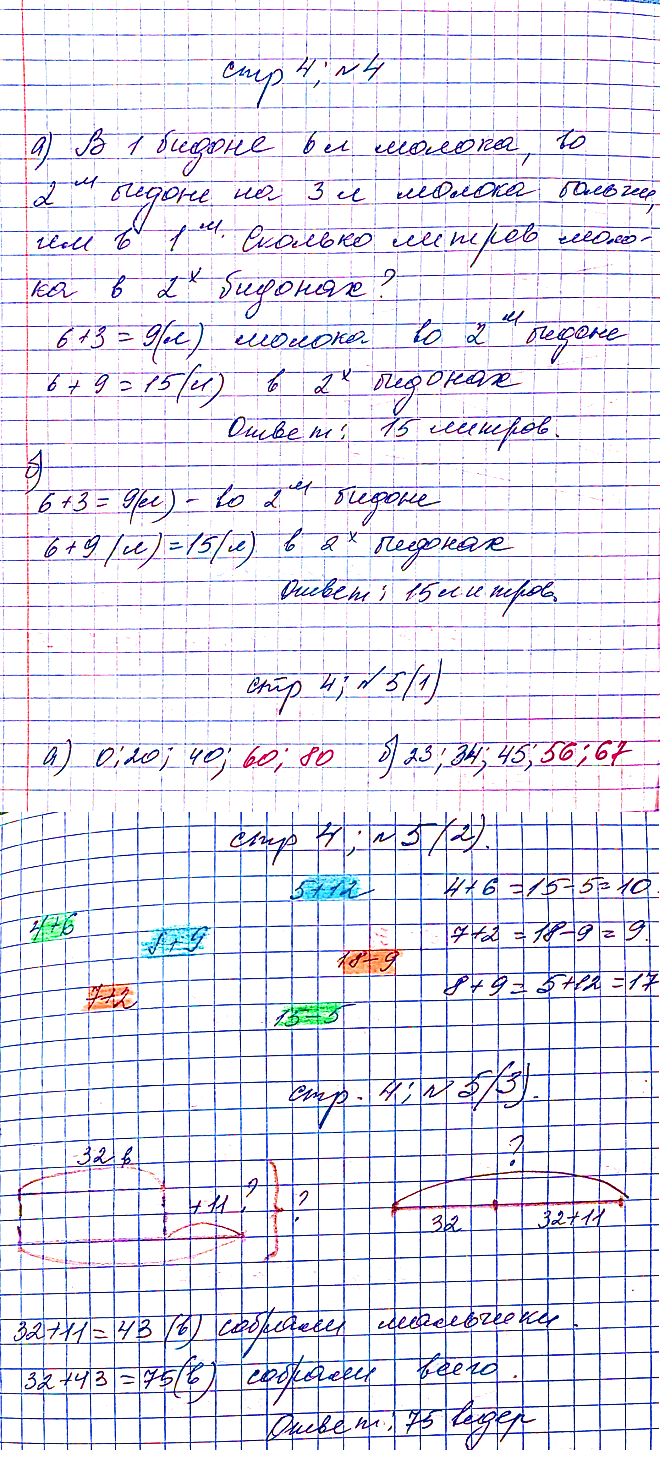 стр 4; №4
а) В 1 бидоне 6 л молока, во
2м бидоне на 3 л молока больше,
чем в 1м. Сколько литров моло-
ка в 2х бидонах?
6+3=9(л) молока во 2м бидоне
6+9=15(л) в 2х бидонах
Ответ: 15 литров.
б)
6+3=9(л) - во 2м бидоне
6+9(л)=15(л) в 2х бидонах
Ответ: 15 литров.
стр 4; №5(1)
а) 0; 20; 40; 60; 80 б) 23; 34; 45; 56; 67
стр 4; №5(2).
5+12 4+6=15-5=10.
4+6 8+9 7+2=18-9=9.
18-9
7+2 8+9=5+12=17
15-5
стр. 4; №5(3).
32 в ?
+11 ? ?
32 32+11
32+11=43 (в) собрали мальчики.
32+43=75(в) собрали всего.
Ответ: 75 ведер